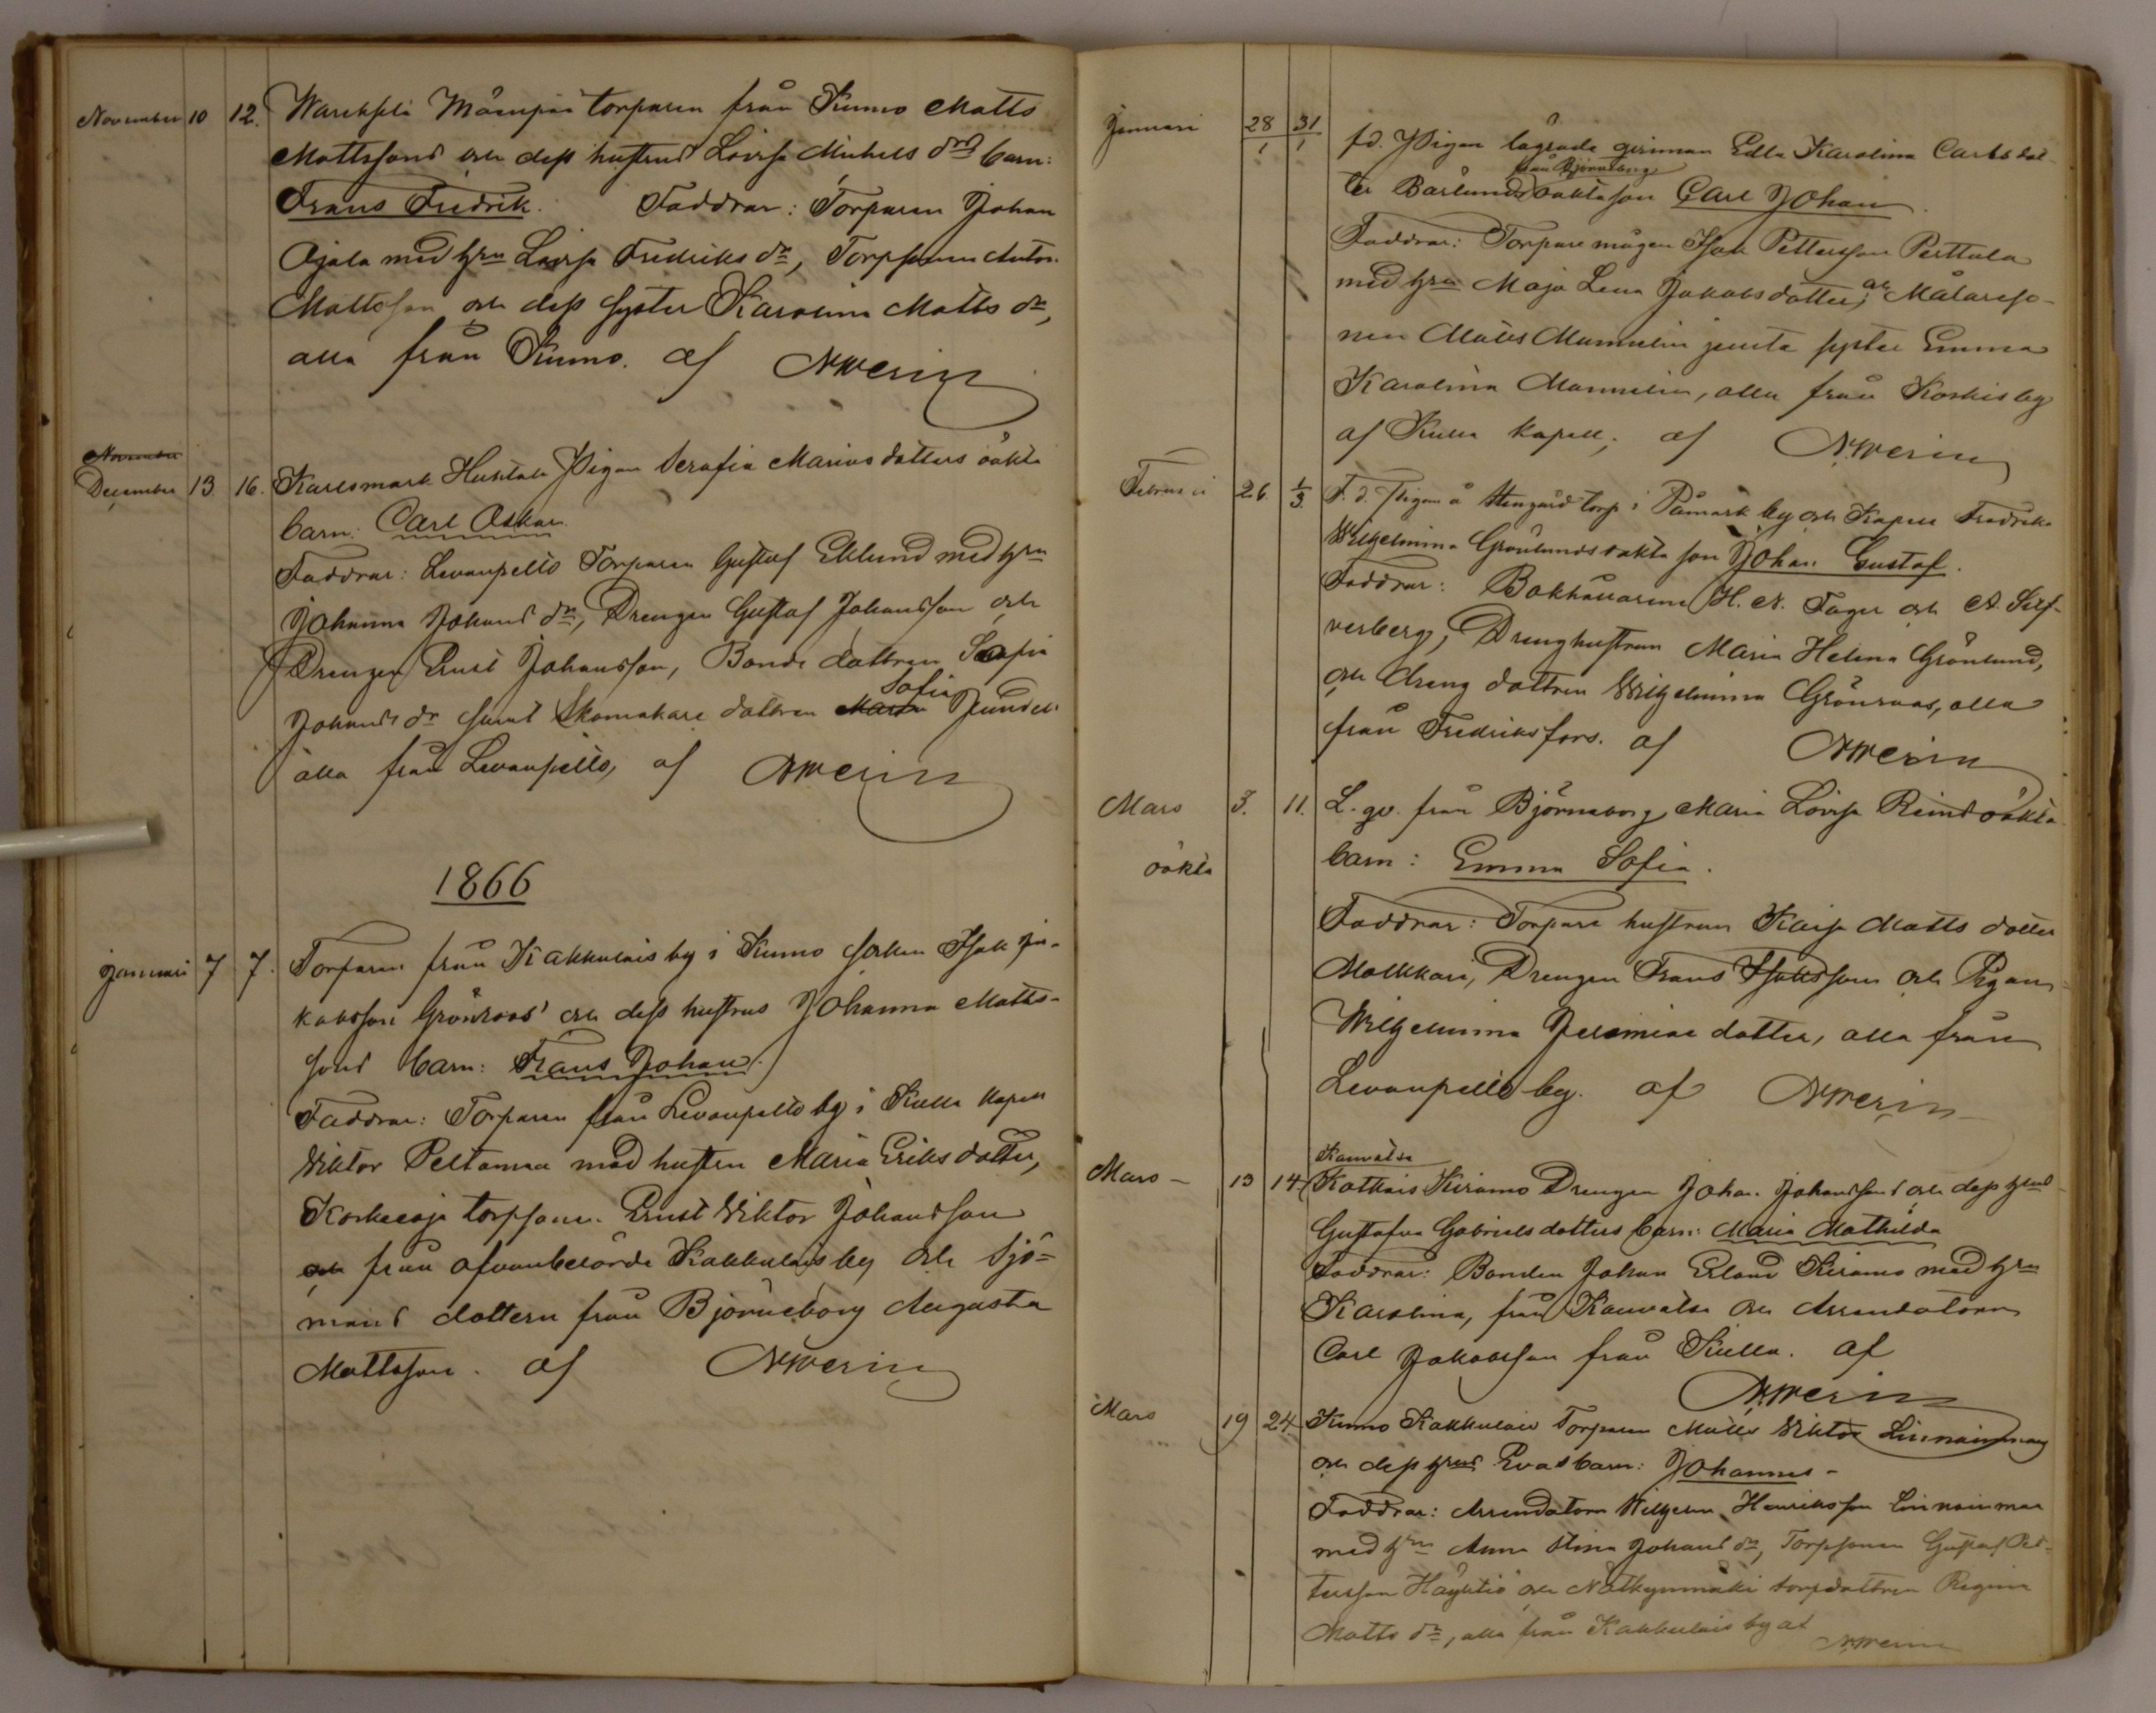 November 10 12. Mämpää torparen från Kumo Matts
Mattssons och dess hustrus Lovisa Michels drs barn:
Frans Fredrik. Faddrar: Torparen Johan
Ojala med hru Lovisa Fredriks dr, Torpsonen Anton
Mattsson och dess syster Karolina Matts dr,
alla från Kumo. af N Merin
November
December 13 16. Karlsmark Huhtala Pigan Serafia Mariasdotters oäkta
barn: Carl Oskar.
Faddrar: Levanpelto Torparen Gustaf Eklund med hru
Johanna Johans dr, Drengen Gustaf Johansson och
Drengen Ernst Johansson, Bonde dottren Serafia
Johans dr samt Skomakare dottren Maria Sofia
alla från Levanpelto, af N Merin
1866
Januari 7 7. Torparen från Kakkulais by i Kumo socken Isak Ja-
kobsson Grönroos' och dess hustrus Johanna Matts-
sons barn: Frans Johan.
Faddrar: Torparen från Levanpelto by i Kulla kapell
Viktor Peltomaa med hustru Maria Eriksdotter,
Korkeeoja torpsonen Ernst Viktor Johansson
och från ofvanberörde Kakkulais by och Sjö-
mans dottern från Björneborg Augusta
Mattsson. af N Merin
Januari 28/1 31/1 fd. Pigan lägrade qvinnan Edla Karolina Carlsdot-
från Björneborg
ter Bärlunds oäkta son Carl Johan.
Faddrar: Torpare mågen Isak Pettersson Perttula
med hru Maja Lena Jakobsdotter, och Målareso-
nen Matts Mannelin jemte syster Emma
Karolina Mannelin, alla från Koskis by
af Kulla kapell, af N Merin
Februari 26. 1/3. F. d. Pigan å Stengård torp i Påmark by och Kapell Fredrika
Wilhelmina Grönlunds oäkta son Johan Gustaf.
Faddrar: Bokhållarene H. A. Fager och A. Silf-
verberg, Drenghustrun Maria Helena Grönlund,
och dreng dottren Wilhelmina Grönroos, alla
från Fredriksfors. af N Merin
Mars 3. 11. L. qv. från Björneborg Maria Lovisa Reims oäkta
oäkta barn: Emma Sofia.
Faddrar: Torpare hustrun Kaisa Matts dotter
Drengen Frans Isaksson och Pigan
Wilhelmina Jeremiae dotter, alla från
Levanpelto by. af N Merin
Kauvatsa
Mars – 13 14 Kiramo Drengen Johan Johanssons och dess hrus
Gustafva Gabrielsdotters barn: Maria Mathilda
Faddrar: Bonden Johan Erland Kiramo med hru
Karolina, från Kauvatsa och Arrendatorn
Carl Jakobsson från Kulla. af
N Merin
Mars 19 24 Kumo Kakkulais Torparen Matts Viktor Linnainmaa
och dess hrus Evas barn: Johannes –
Faddrar: Arrendatorn Wilhelm Henriksson Linnainmaa
med hru Anna Stina Johans dr, Torpsonen Gustaf Pet-
tersson Häyhtiö och torpdottren Regina
Matts dr, alla från Kakkulais by af N Merin